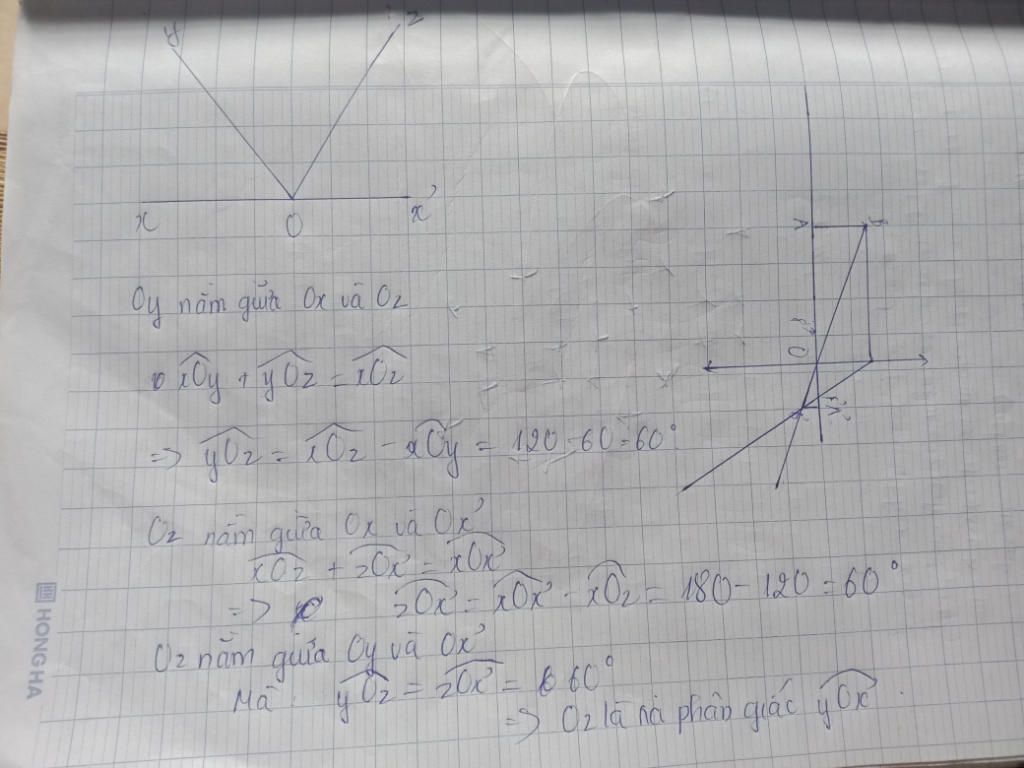 y z
x O x'
A B
F
O
F' A'
Oy nằm giữa Ox và Oz
xOy + yOz = xOz
=> yOz = xOz - xOy = 120 - 60 = 60°
Oz nằm giữa Ox và Ox'
xOz + zOx' = xOx'
=> zOx' = xOx' - xOz = 180 - 120 = 60°
Oz nằm giữa Oy và Ox'
Mà: yOz = zOx' = 60°
=> Oz là phân giác yOx'
HONG HA